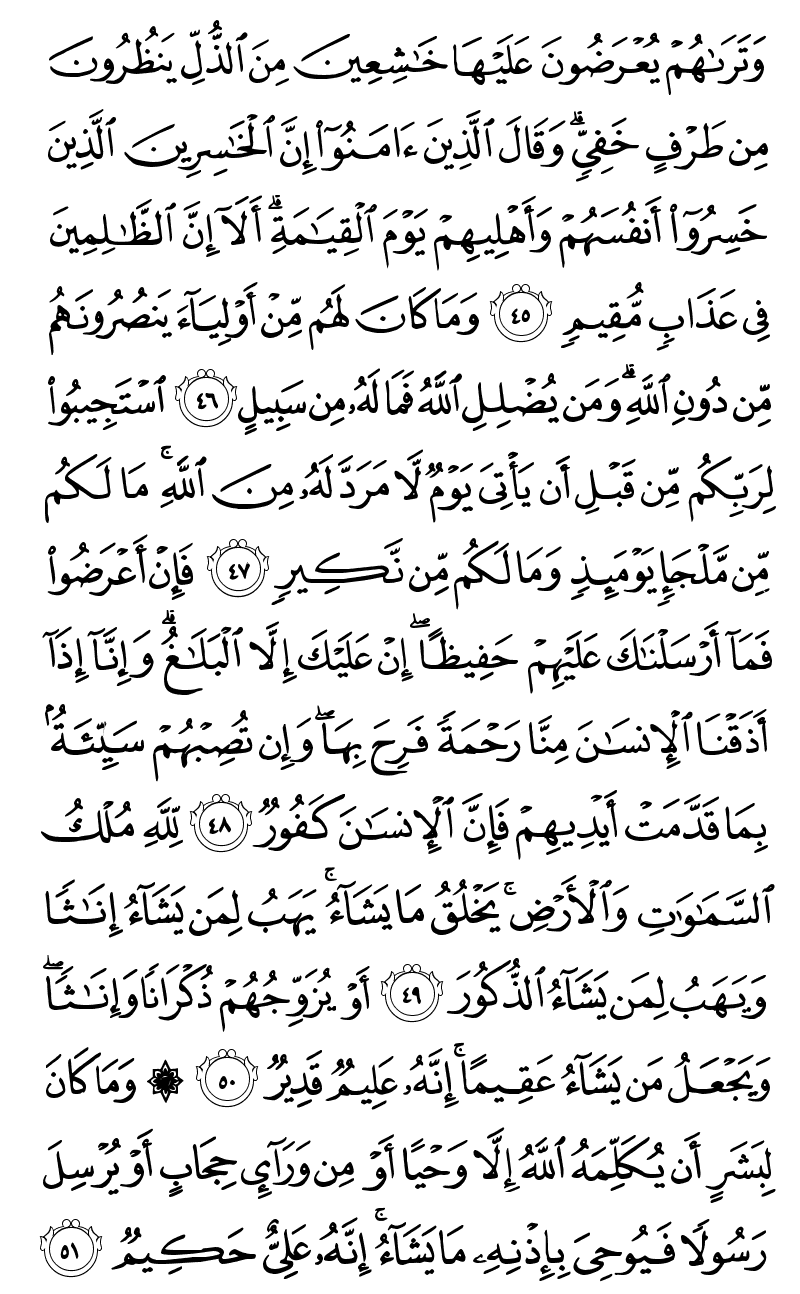 وَتَرَىٰهُمۡ يُعۡرَضُونَ عَلَيۡهَا خَٰشِعِينَ مِنَ ٱلذُّلِّ يَنظُرُونَ
مِن طَرۡفٍ خَفِيّٖۗ وَقَالَ ٱلَّذِينَ ءَامَنُوٓاْ إِنَّ ٱلۡخَٰسِرِينَ ٱلَّذِينَ
خَسِرُوٓاْ أَنفُسَهُمۡ وَأَهۡلِيهِمۡ يَوۡمَ ٱلۡقِيَٰمَةِۗ أَلَآ إِنَّ ٱلظَّٰلِمِينَ
فِي عَذَابٖ مُّقِيمٖ ٤٥ وَمَا كَانَ لَهُم مِّنۡ أَوۡلِيَآءَ يَنصُرُونَهُم
مِّن دُونِ ٱللَّهِۗ وَمَن يُضۡلِلِ ٱللَّهُ فَمَا لَهُۥ مِن سَبِيلٍ ٤٦ ٱسۡتَجِيبُواْ
لِرَبِّكُم مِّن قَبۡلِ أَن يَأۡتِيَ يَوۡمٞ لَّا مَرَدَّ لَهُۥ مِنَ ٱللَّهِۚ مَا لَكُم
مِّن مَّلۡجَإٖ يَوۡمَئِذٖ وَمَا لَكُم مِّن نَّكِيرٖ ٤٧ فَإِنۡ أَعۡرَضُواْ
فَمَآ أَرۡسَلۡنَٰكَ عَلَيۡهِمۡ حَفِيظًاۖ إِنۡ عَلَيۡكَ إِلَّا ٱلۡبَلَٰغُۗ وَإِنَّآ إِذَآ
أَذَقۡنَا ٱلۡإِنسَٰنَ مِنَّا رَحۡمَةٗ فَرِحَ بِهَاۖ وَإِن تُصِبۡهُمۡ سَيِّئَةُۢ
بِمَا قَدَّمَتۡ أَيۡدِيهِمۡ فَإِنَّ ٱلۡإِنسَٰنَ كَفُورٞ ٤٨ لِّلَّهِ مُلۡكُ
ٱلسَّمَٰوَٰتِ وَٱلۡأَرۡضِۚ يَخۡلُقُ مَا يَشَآءُۚ يَهَبُ لِمَن يَشَآءُ إِنَٰثٗا
وَيَهَبُ لِمَن يَشَآءُ ٱلذُّكُورَ ٤٩ أَوۡ يُزَوِّجُهُمۡ ذُكۡرَانٗا وَإِنَٰثٗاۖ
وَيَجۡعَلُ مَن يَشَآءُ عَقِيمًاۚ إِنَّهُۥ عَلِيمٞ قَدِيرٞ ٥٠ ۞ وَمَا كَانَ
لِبَشَرٍ أَن يُكَلِّمَهُ ٱللَّهُ إِلَّا وَحۡيًا أَوۡ مِن وَرَآيِٕ حِجَابٍ أَوۡ يُرۡسِلَ
رَسُولٗا فَيُوحِيَ بِإِذۡنِهِۦ مَا يَشَآءُۚ إِنَّهُۥ عَلِيٌّ حَكِيمٞ ٥١